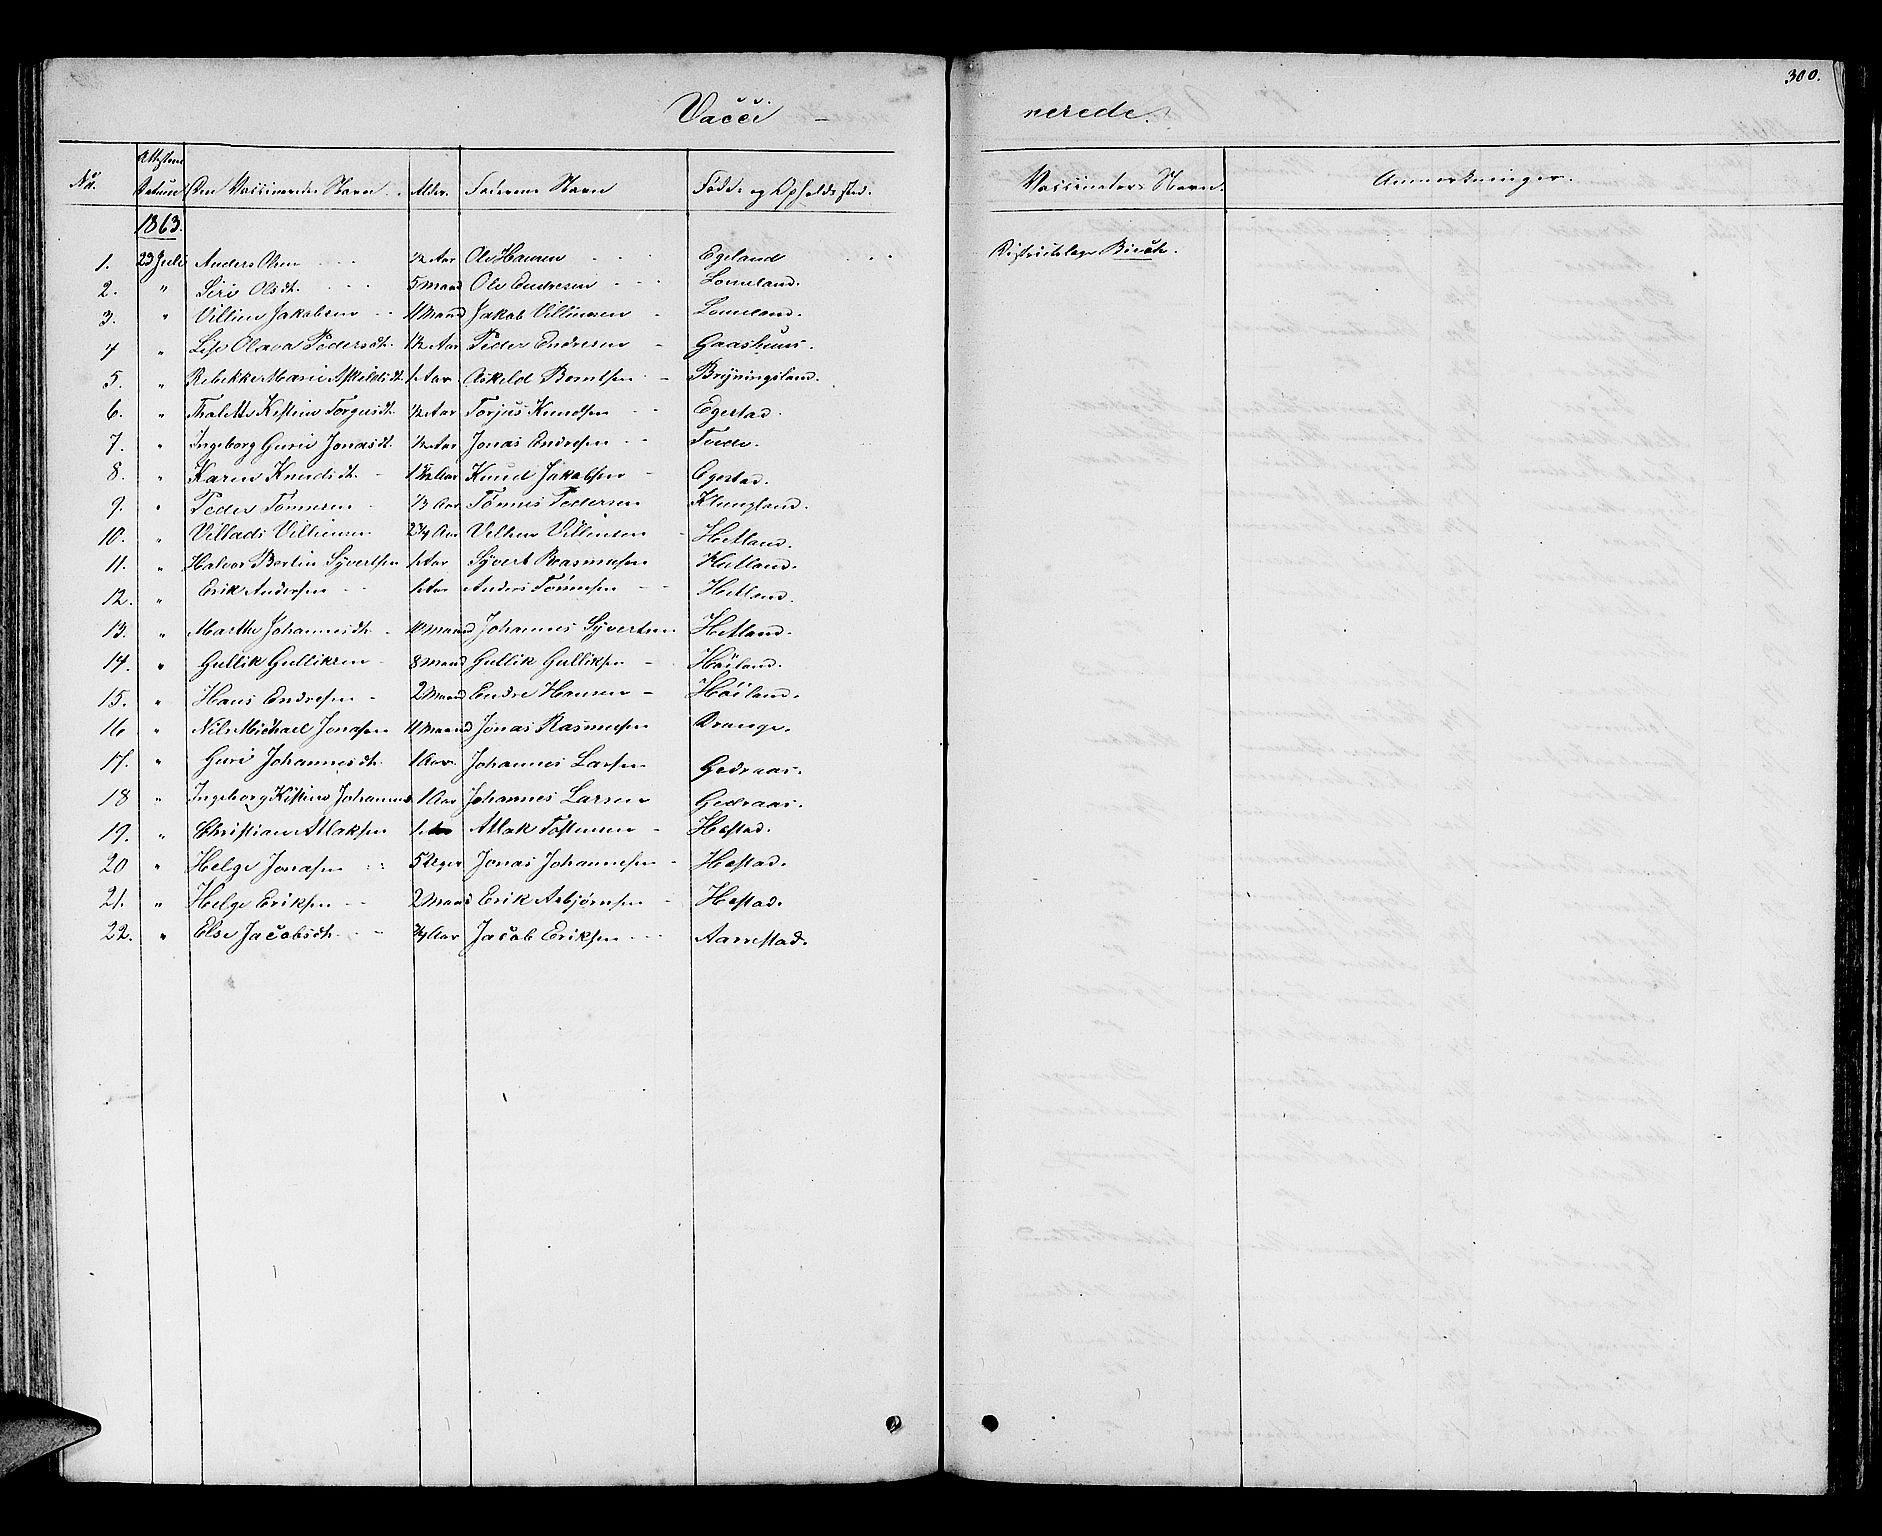 300.
Vacci - nerede.
No. Attestens Datum Den Vaccineredes Navn. Alder. Faderens Navn Føde- og Opholdssted. Vaccinators Navn. Anmerkninger.
1863.
1. 23 Juli Anders Olsen ½ Aar Ole Hansen Egeland Districtslæge Buch.
2. " Siri Olsdt. 5 Maand Ole Endresen Lomeland.
3. " Villien Jakobsen 11 Maand Jakob Villiensen Lomeland.
4 " Lise Olava Pedersdt. 1½ Aar Peder Endresen Gaashuus.
5. " Rebekke Marie Askildsdt. 1 Aar Askild Berntsen Bryningsland.
6. " Thalette Kistine Torgusdt. ½ Aar Torjus Knudsen Egestad.
7. " Ingeborg Gurie Jonasdt. ½ Aar Jonas Endresen
8. " Karen Knudsdt. 1½ Aar Knud Jakobsen Egestad.
9. " Peder Tønnesen ⅓ Aar Tønnes Pedersen Klungland.
10. " Villads Villiensen 2¼ Aar Villien Villiensen Hetland.
11. " Halvor Bertin Syvertsen 1 Aar Syvert Rasmusen Hetland.
12. " Erik Andersen 1 Aar Anders Tønnesen Hetland.
13. " Marthe Johannesdt. 10 Maand Johannes Syvertsen Hetland.
14. " Gullik Gulliksen 8 Maand Gullik Gulliksen Høiland.
15. " Hans Endresen 2 Maand Endre Hansen Høiland.
16 " Nils Michael Jonasen 11 Maand Jonas Rasmusen Drange.
17. " Guri Johannesdt. 1 Aar Johannes Larsen Gedraas.
18 " Ingeborg Kistine Johannes 1 Aar Johannes Larsen Gedraas.
19. " Christian Atlaksen 1 Atlak Tostensen Hestad.
20 " Helge Jonasen 5 Uger Jonas Johannesen Hestad.
21. " Helge Eriksen 2 Maand Erik Asbjørnsen Hestad.
22. " Else Jacobsdt. ¾ Aar Jacob Eriksen Aarrestad.